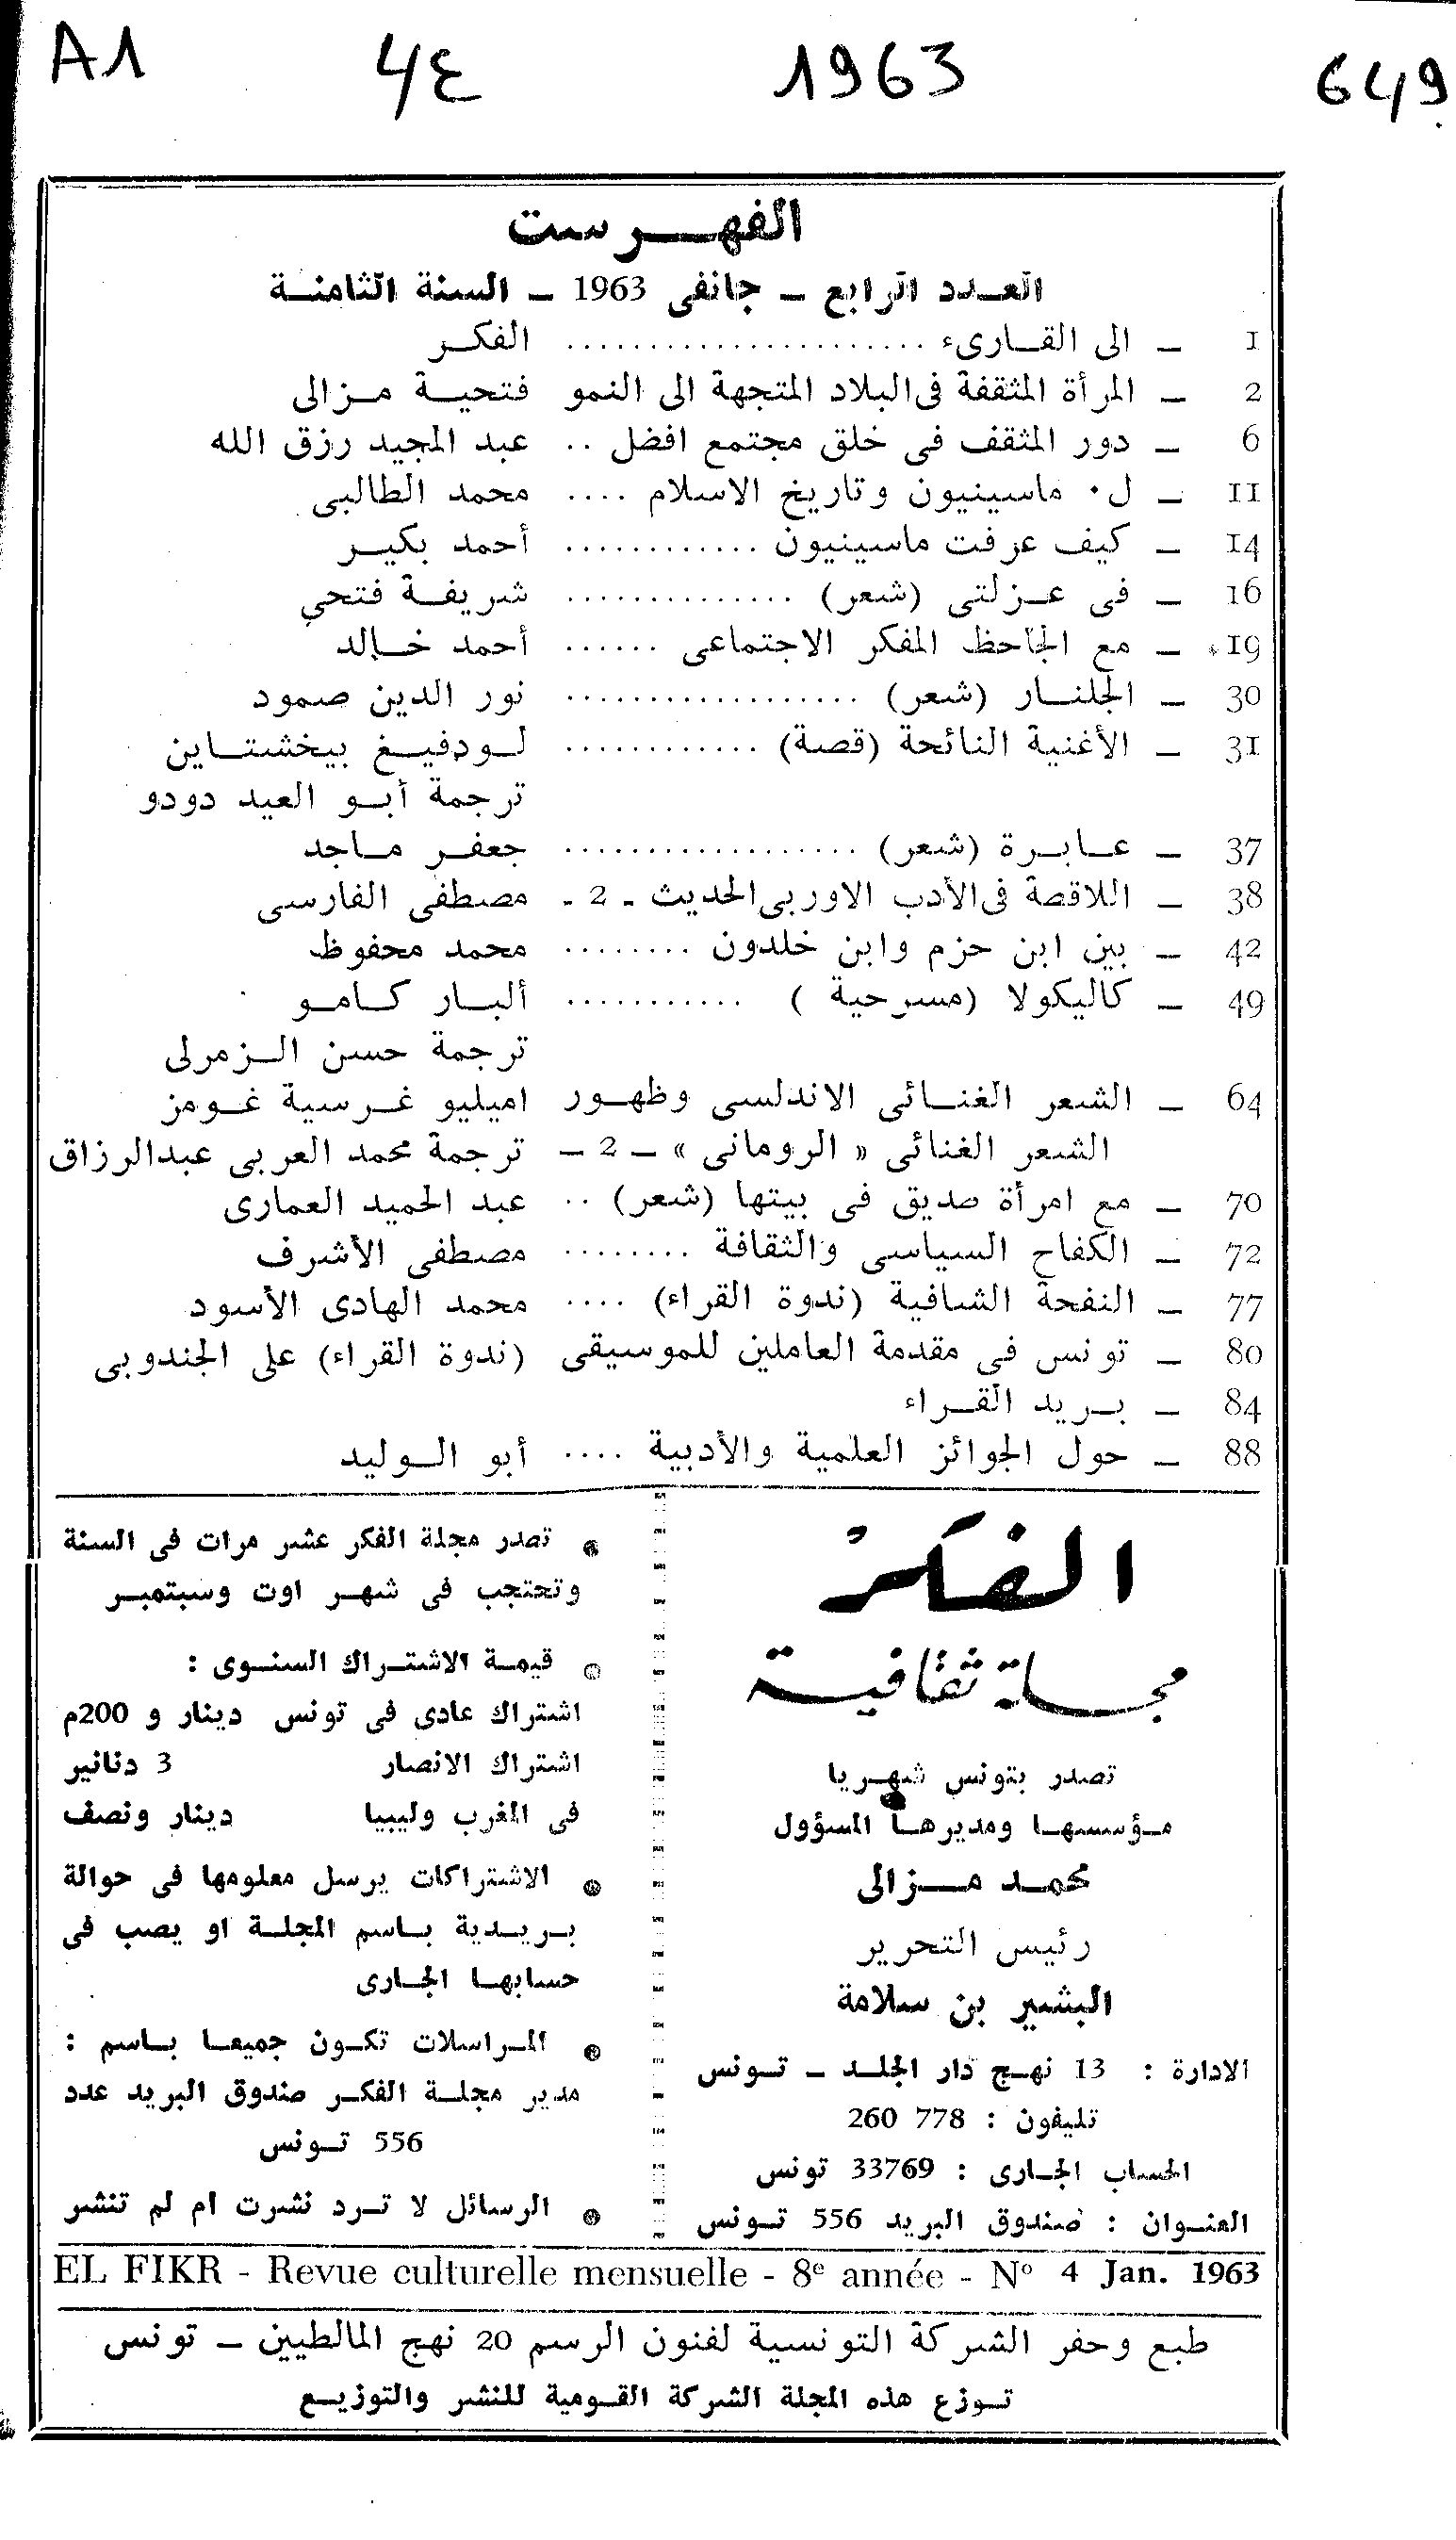 A1 4ع 1963 649
الفهرست
العدد الرابع ـ جانفى 1963 ـ السنة الثامنة
1 ـ الى القارىء ...................... الفكر
2 ـ المرأة المثقفة فى البلاد المتجهة الى النمو فتحية مزالى
6 ـ دور المثقف فى خلق مجتمع افضل .. عبد المجيد رزق الله
11 ـ ل. ماسينيون وتاريخ الاسلام .... محمد الطالبى
14 ـ كيف عرفت ماسينيون ............ أحمد بكير
16 ـ فى عزلتى (شعر) .............. شريفة فتحي
19 ـ مع الجاحظ المفكر الاجتماعى ...... أحمد خالد
30 ـ الجلنار (شعر) .................. نور الدين صمود
31 ـ الأغنية النائحة (قصة) ............ لودفيغ بيخشتاين
ترجمة أبو العيد دودو
37 ـ عابرة (شعر) .................. جعفر ماجد
38 ـ اللاقصة فى الأدب الاوربى الحديث ـ 2 ـ مصطفى الفارسى
42 ـ بين ابن حزم وابن خلدون ........ محمد محفوظ
49 ـ كاليكولا (مسرحية ) ........... ألبار كامو
ترجمة حسن الزمرلى
64 ـ الشعر الغنائى الاندلسى وظهور اميليو غرسية غومز
الشعر الغنائى « الرومانى» ـ 2 ـ ترجمة محمد العربى عبدالرزاق
70 ـ مع امرأة صديق فى بيتها (شعر) .. عبد الحميد العمارى
72 ـ الكفاح السياسى والثقافة ........ مصطفى الأشرف
77 ـ النفحة الشافية (ندوة القراء) .... محمد الهادى الأسود
80 ـ تونس فى مقدمة العاملين للموسيقى (ندوة القراء) على الجندوبى
84 ـ بريد القراء
88 ـ حول الجوائز العلمية والأدبية .... أبو الوليد
الفكر
مجلة ثقافية
تصدر بتونس شهريا
مؤسسها ومديرها المسؤول
محمد مزالى
رئيس التحرير
البشير بن سلامة
الادارة : 13 نهج دار الجلد ـ تونس
تليفون : 778 260
الحساب الجارى : 33769 تونس
العنوان : صندوق البريد 556 تونس
تصدر مجلة الفكر عشر مرات فى السنة
وتحتجب فى شهر اوت وسبتمبر
قيمة الاشتراك السنوى :
اشتراك عادى فى تونس دينار و 200م
اشتراك الانصار 3 دنانير
فى المغرب وليبيا دينار ونصف
الاشتراكات يرسل معلومها فى حوالة
بريدية باسم المجلة او يصب فى
حسابها الجارى
المراسلات تكون جميعا باسم :
مدير مجلة الفكر صندوق البريد عدد
556 تونس
الرسائل لا ترد نشرت ام لم تنشر
EL FIKR - Revue culturelle mensuelle - 8e année - No 4 Jan. 1963
طبع وحفر الشركة التونسية لفنون الرسم 20 نهج المالطيين ـ تونس
توزع هذه المجلة الشركة القومية للنشر والتوزيع